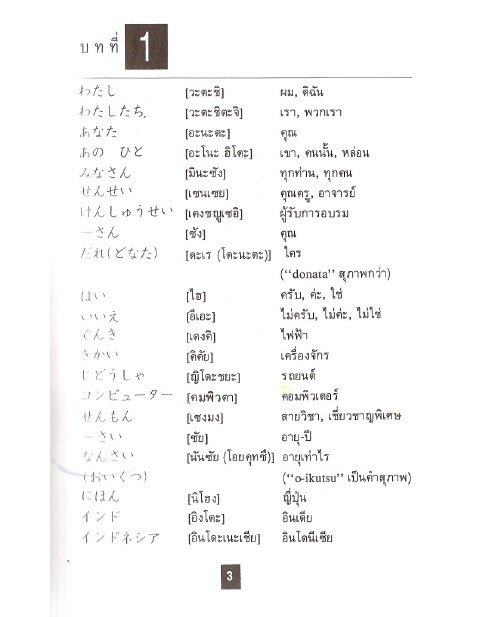 บทที่ 1
わたし [วะตะชิ] ผม, ดิฉัน
わたしたち. [วะตะชิตะจิ] เรา, พวกเรา
あなた [อะนะตะ] คุณ
あの ひと [อะโนะ ฮิโตะ] เขา, คนนั้น, หล่อน
みなさん [มินะซัง] ทุกท่าน, ทุกคน
せんせい [เซนเซย] คุณครู, อาจารย์
けんしゅうせい [เคงชญูเซอิ] ผู้รับการอบรม
ーさん [ซัง] คุณ
だれ(どなた) [ดะเร (โดะนะตะ)] ใคร
(“donata” สุภาพกว่า)
はい [ไฮ] ครับ, ค่ะ, ใช่
いいえ [อีเอะ] ไม่ครับ, ไม่ค่ะ, ไม่ใช่
でんき [เดงคิ] ไฟฟ้า
きかい [คิคัย] เครื่องจักร
じどうしゃ [ญิโดะชยะ] รถยนต์
コンピューター [คมพิวตา] คอมพิวเตอร์
せんもん [เซงมง] สายวิชา, เชี่ยวชาญพิเศษ
ーさい [ซัย] อายุ-ปี
なんさい [นันซัย (โอยคุทซึ)] อายุเท่าไร
(おいくつ) (“o-ikutsu” เป็นคำสุภาพ)
にほん [นิโฮง] ญี่ปุ่น
インド [อิงโดะ] อินเดีย
インドネシア [อินโดะเนะเชีย] อินโดนีเซีย
3